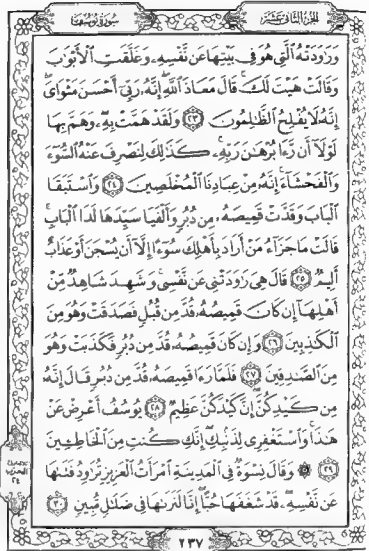 الجزء الثاني عشر
سورة يوسف
وَرَٰوَدَتْهُ ٱلَّتِى هُوَ فِى بَيْتِهَا عَن نَّفْسِهِۦ وَغَلَّقَتِ ٱلْأَبْوَٰبَ
وَقَالَتْ هَيْتَ لَكَ ۚ قَالَ مَعَاذَ ٱللَّهِ ۖ إِنَّهُۥ رَبِّىٓ أَحْسَنَ مَثْوَاىَ ۖ
إِنَّهُۥ لَا يُفْلِحُ ٱلظَّٰلِمُونَ ٢٣ وَلَقَدْ هَمَّتْ بِهِۦ ۖ وَهَمَّ بِهَا
لَوْلَآ أَن رَّءَا بُرْهَٰنَ رَبِّهِۦ ۚ كَذَٰلِكَ لِنَصْرِفَ عَنْهُ ٱلسُّوٓءَ
وَٱلْفَحْشَآءَ ۚ إِنَّهُۥ مِنْ عِبَادِنَا ٱلْمُخْلَصِينَ ٢٤ وَٱسْتَبَقَا
ٱلْبَابَ وَقَدَّتْ قَمِيصَهُۥ مِن دُبُرٍ وَأَلْفَيَا سَيِّدَهَا لَدَا ٱلْبَابِ ۚ
قَالَتْ مَا جَزَآءُ مَنْ أَرَادَ بِأَهْلِكَ سُوٓءًا إِلَّآ أَن يُسْجَنَ أَوْ عَذَابٌ
أَلِيمٌ ٢٥ قَالَ هِىَ رَٰوَدَتْنِى عَن نَّفْسِى ۚ وَشَهِدَ شَاهِدٌ مِّنْ
أَهْلِهَآ إِن كَانَ قَمِيصُهُۥ قُدَّ مِن قُبُلٍ فَصَدَقَتْ وَهُوَ مِنَ
ٱلْكَٰذِبِينَ ٢٦ وَإِن كَانَ قَمِيصُهُۥ قُدَّ مِن دُبُرٍ فَكَذَبَتْ وَهُوَ
مِنَ ٱلصَّٰدِقِينَ ٢٧ فَلَمَّا رَءَا قَمِيصَهُۥ قُدَّ مِن دُبُرٍ قَالَ إِنَّهُۥ
مِن كَيْدِكُنَّ ۖ إِنَّ كَيْدَكُنَّ عَظِيمٌ ٢٨ يُوسُفُ أَعْرِضْ عَنْ
هَٰذَا ۚ وَٱسْتَغْفِرِى لِذَنۢبِكِ ۖ إِنَّكِ كُنتِ مِنَ ٱلْخَاطِـِٔينَ
٢٩ ۞ وَقَالَ نِسْوَةٌ فِى ٱلْمَدِينَةِ ٱمْرَأَتُ ٱلْعَزِيزِ تُرَٰوِدُ فَتَىٰهَا
عَن نَّفْسِهِۦ ۖ قَدْ شَغَفَهَا حُبًّا ۖ إِنَّا لَنَرَىٰهَا فِى ضَلَٰلٍ مُّبِينٍ ٣٠
٢٣٧